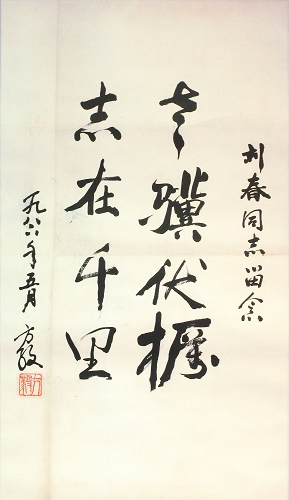 刘春同志留念
老骥伏枥
志在千里
一九八六年五月 方毅